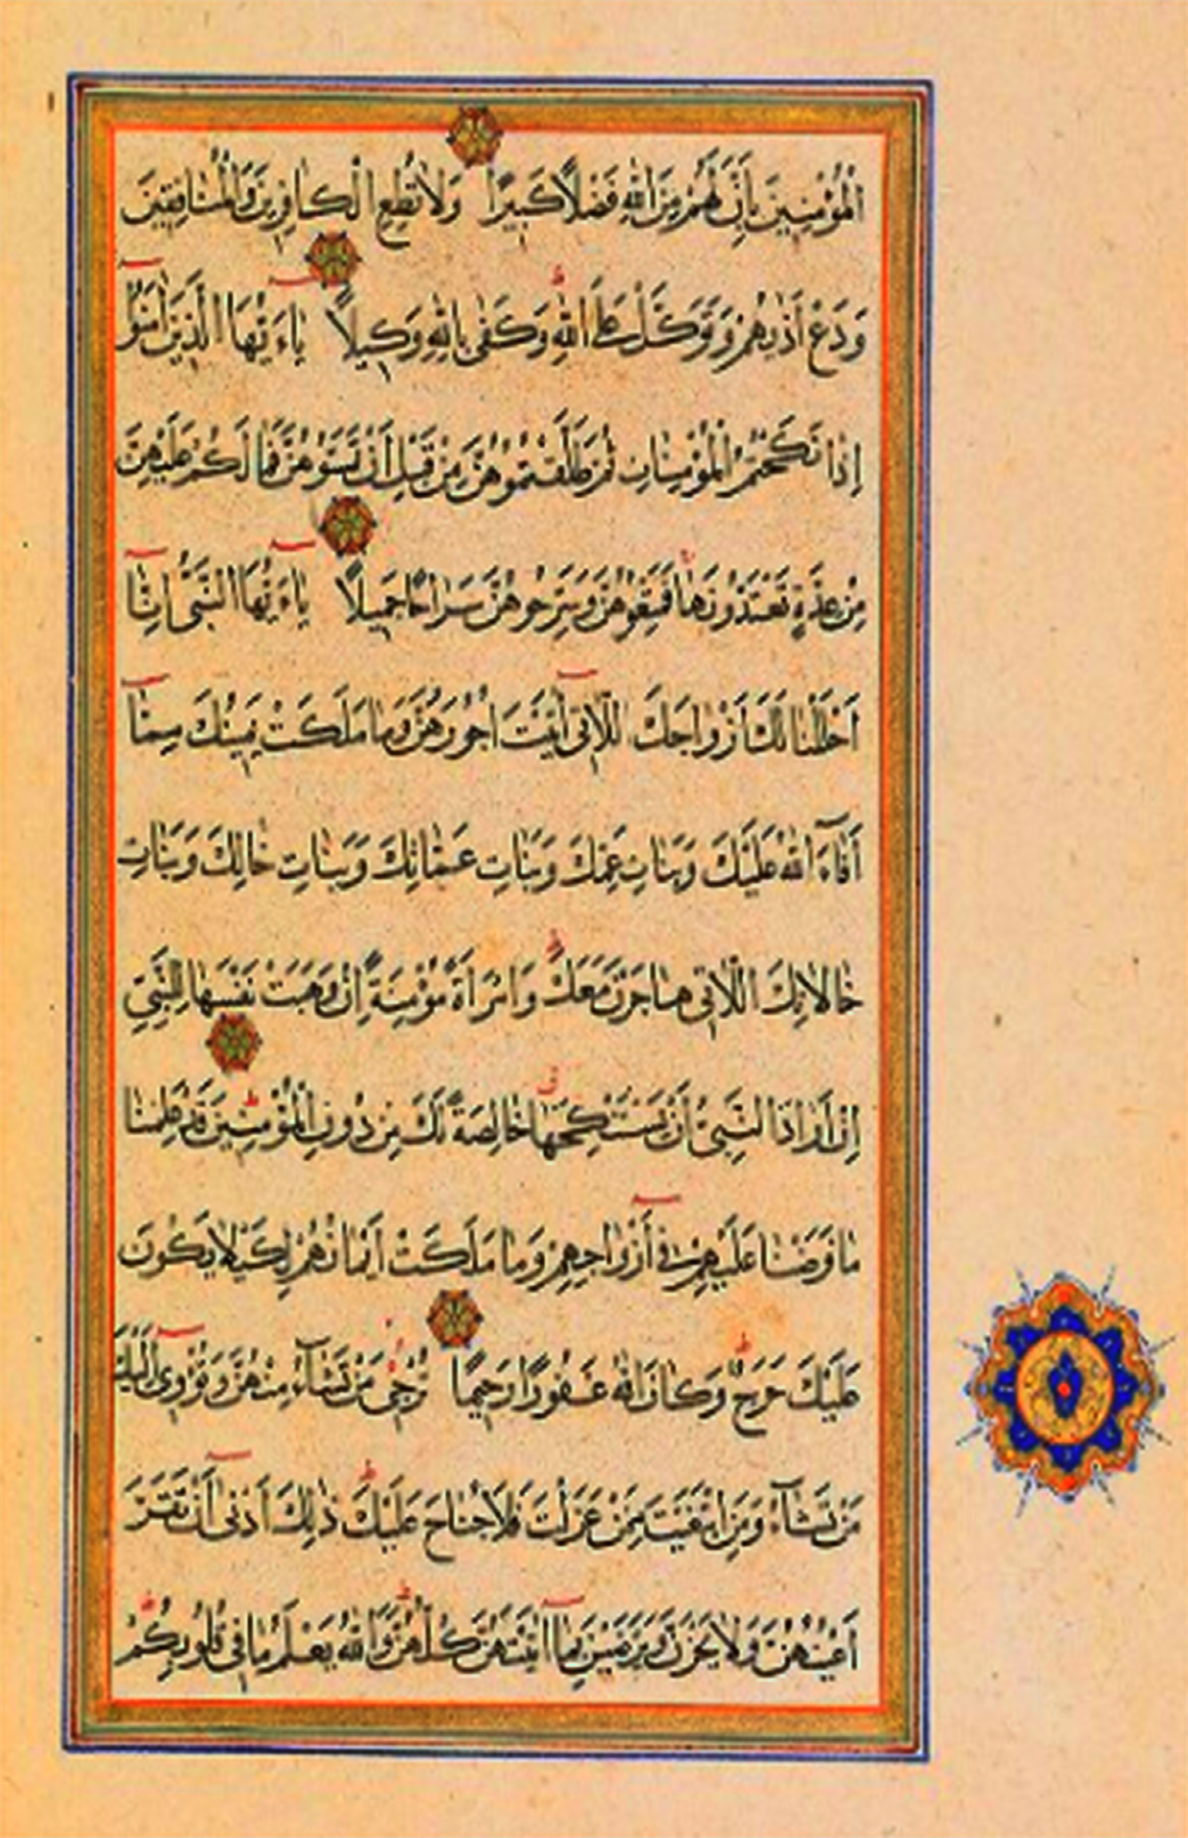 الْمُؤْمِنِينَ بِاَنَّ لَهُمْ مِنَ اللّٰهِ فَضْلاً كَبِيرًا وَلَا تُطِعِ الْكَافِرِينَ وَالْمُنَافِقِينَ
وَدَعْ اَذٰيهُمْ وَتَوَكَّلْ عَلَى اللّٰهِ وَكَفٰى بِاللّٰهِ وَكِيلاً يَاءَيُّهَا الَّذِينَ اٰمَنُوٓا
اِذَا نَكَحْتُمُ الْمُؤْمِنَاتِ ثُمَّ طَلَّقْتُمُوهُنَّ مِنْ قَبْلِ اَنْ تَمَسُّوهُنَّ فَمَا لَكُمْ عَلَيْهِنَّ
مِنْ عِدَّةٍ تَعْتَدُّونَهَا فَمَتِّعُوهُنَّ وَسَرِّحُوهُنَّ سَرَاحًا جَمِيلاً يَاءَيُّهَا النَّبِىُّ اِنَّٓا
اَحْلَلْنَا لَكَ اَزْوَاجَكَ اللَّاتِىٓ اٰتَيْتَ اُجُورَهُنَّ وَمَا مَلَكَتْ يَمِينُكَ مِمَّٓا
اَفَٓاءَ اللّٰهُ عَلَيْكَ وَبَنَاتِ عَمِّكَ وَبَنَاتِ عَمَّاتِكَ وَبَنَاتِ خَالِكَ وَبَنَاتِ
خَالَاتِكَ اللَّاتِى هَاجَرْنَ مَعَكَ وَامْرَاَةً مُؤْمِنَةً اِنْ وَهَبَتْ نَفْسَهَا لِلنَّبِىِّ
اِنْ اَرَادَ النَّبِىُّ اَنْ يَسْتَنْكِحَهَا خَالِصَةً لَكَ مِنْ دُونِ الْمُؤْمِنِينَ قَدْ عَلِمْنَا
مَا فَرَضْنَا عَلَيْهِمْ فِىٓ اَزْوَاجِهِمْ وَمَا مَلَكَتْ اَيْمَانُهُمْ لِكَيْلَا يَكُونَ
عَلَيْكَ حَرَجٌ وَكَانَ اللّٰهُ غَفُورًا رَحِيمًا تُرْجِى مَنْ تَشَٓاءُ مِنْهُنَّ وَتُؤْوِىٓ اِلَيْكَ
مَنْ تَشَٓاءُ وَمَنِ ابْتَغَيْتَ مِمَّنْ عَزَلْتَ فَلَا جُنَاحَ عَلَيْكَ ذٰلِكَ اَدْنٰىٓ اَنْ تَقَرَّ
اَعْيُنُهُنَّ وَلَا يَحْزَنَّ وَيَرْضَيْنَ بِمَٓا اٰتَيْتَهُنَّ كُلُّهُنَّ وَاللّٰهُ يَعْلَمُ مَا فِى قُلُوبِكُمْ